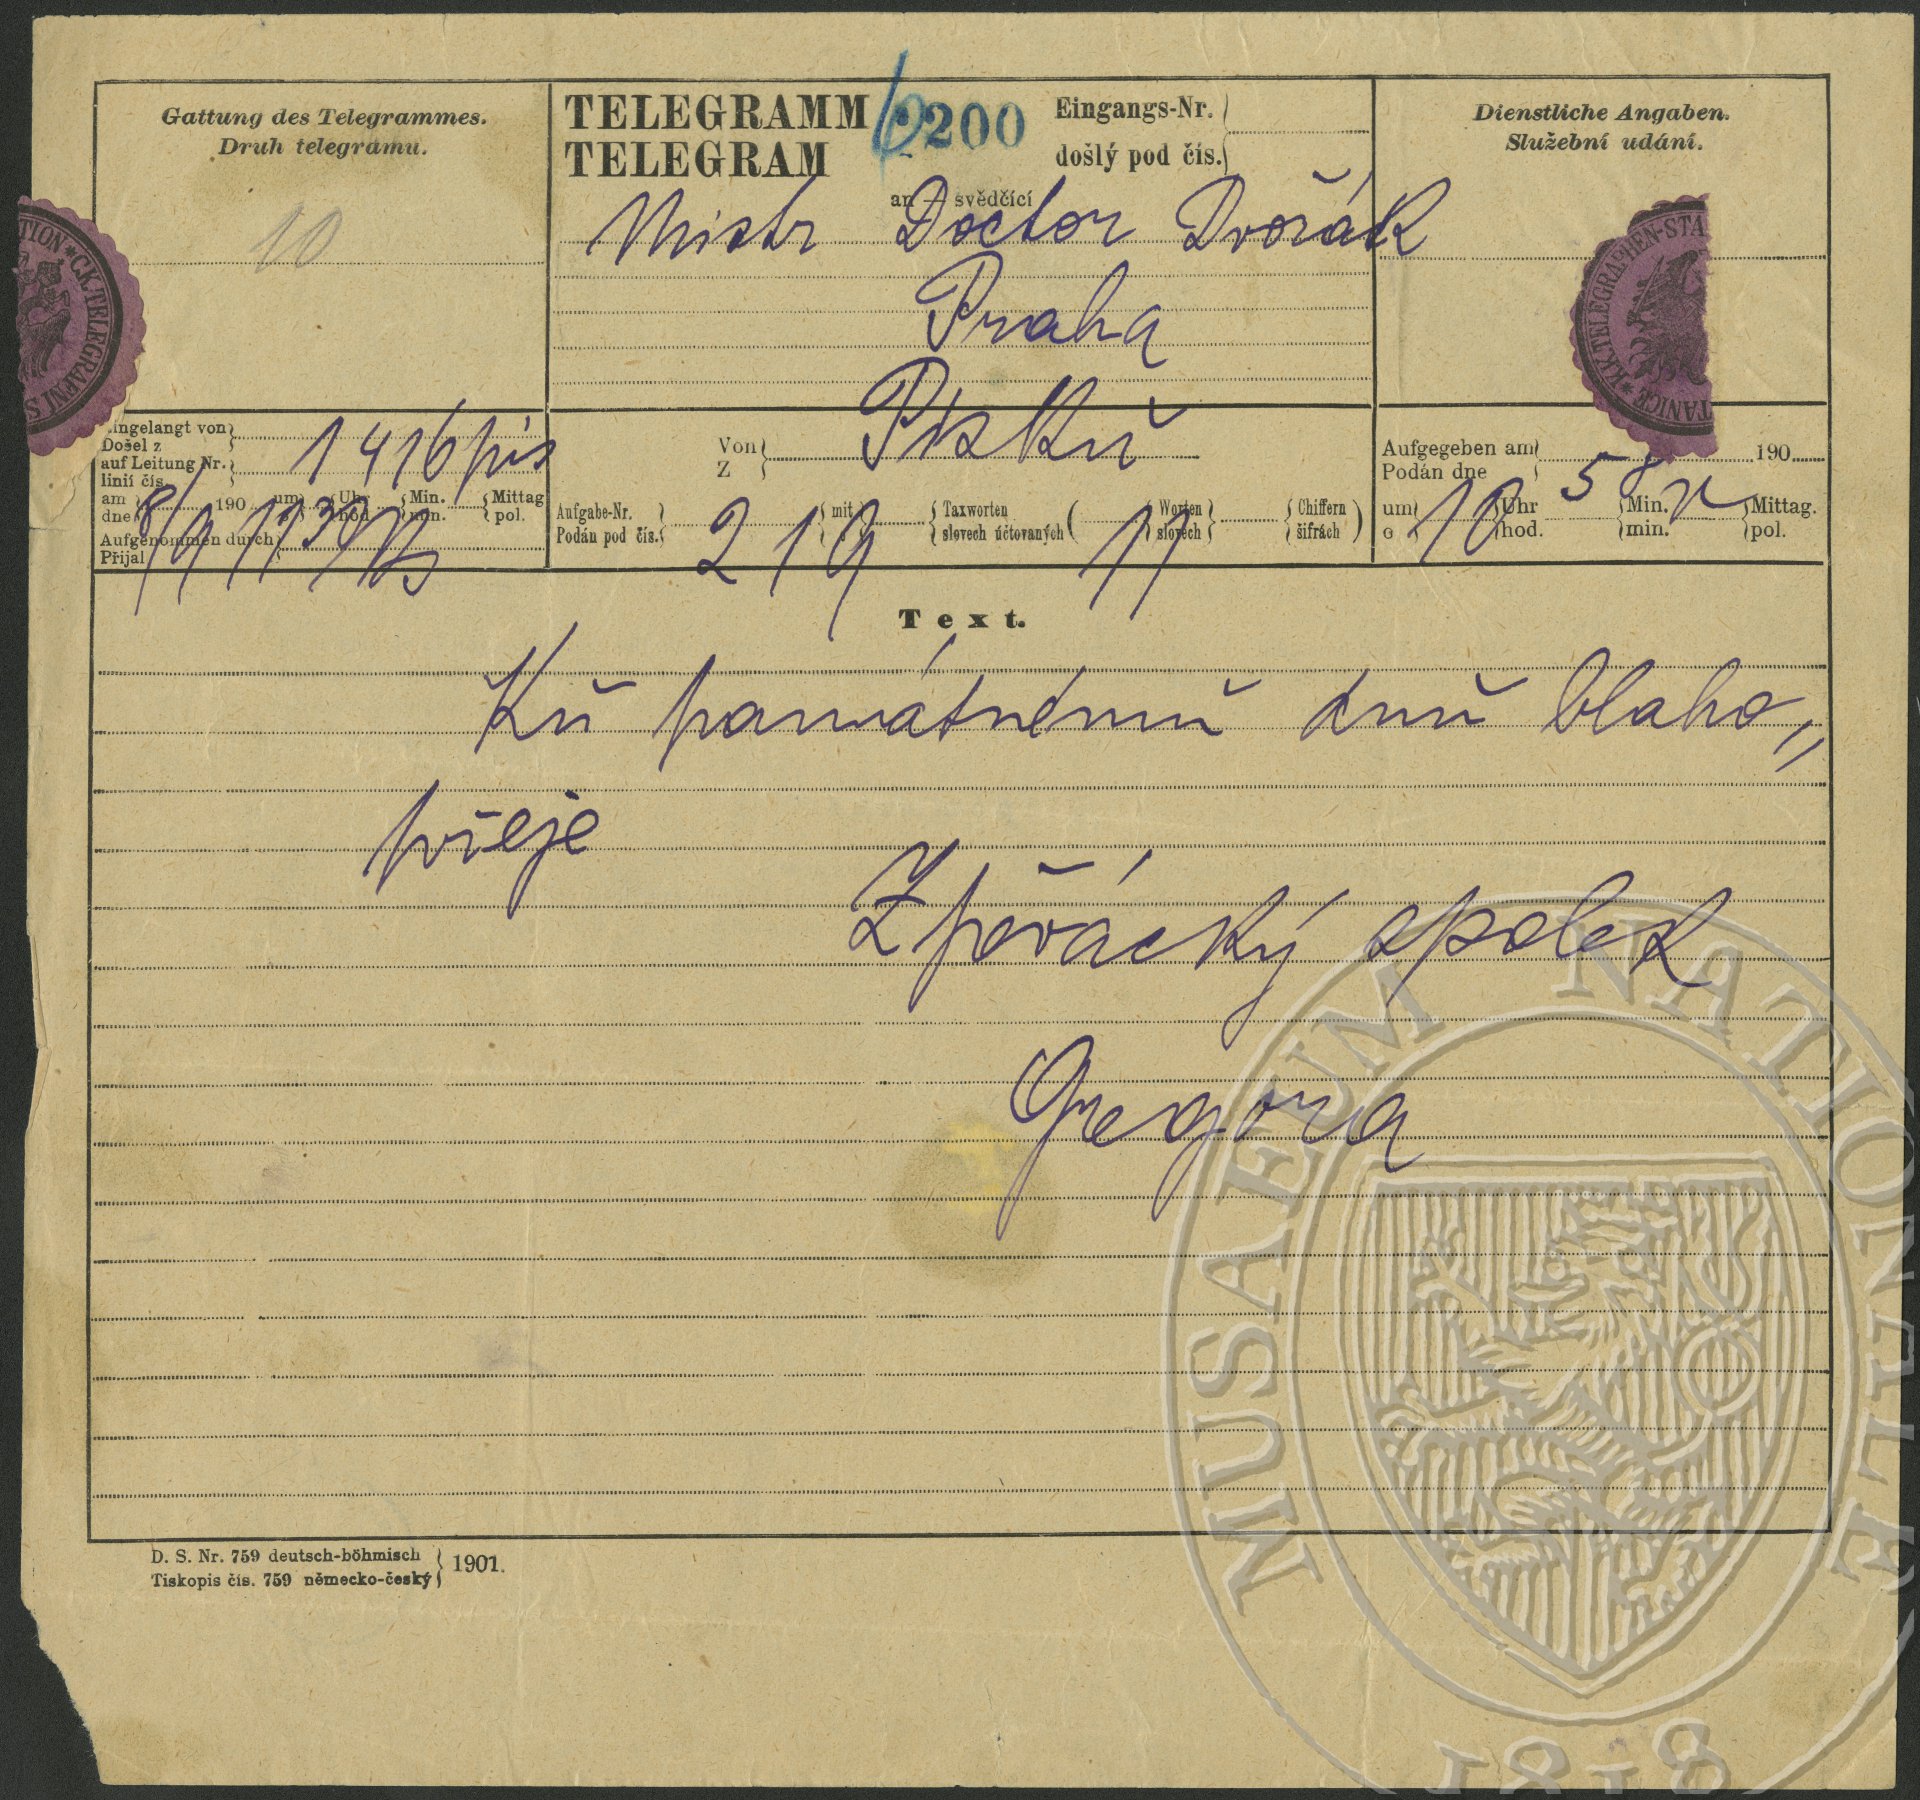 Gattung des Telegrammes.
Druh telegramu.
10
TELEGRAMM
TELEGRAM
200
Eingangs-Nr.
došlý pod čís.
an — svědčící
Dienstliche Angaben.
Služební udání.
Mistr Doctor Dvořák
Praha
TION * C.K. TELEGRAFNÍ S
K.K. TELEGRAPHEN-STA
STANICE *
ingelangt von
Došel z
auf Leitung Nr.
linií čís.
1416 pís
am
dne
8/9
190
um
o
11
Uhr
hod.
39
Min.
min.
Mittag
pol.
Aufgenommen durch
Přijal
Von
Z
Písku
Aufgabe-Nr.
Podán pod čís.
219
mit
Taxworten
slovech účtovaných
(
11
Worten
slovech
Chiffern
šifrách
)
Aufgegeben am
Podán dne
190
um
o
10
Uhr
hod.
58
Min.
min.
Mittag.
pol.
Text.
Ku památnému dnu blaho„
přeje
Zpěvácký spolek
Gregora
D. S. Nr. 759 deutsch-böhmisch
Tiskopis čís. 759 německo-český
1901.
MUSAEUM NATIONALE
1818